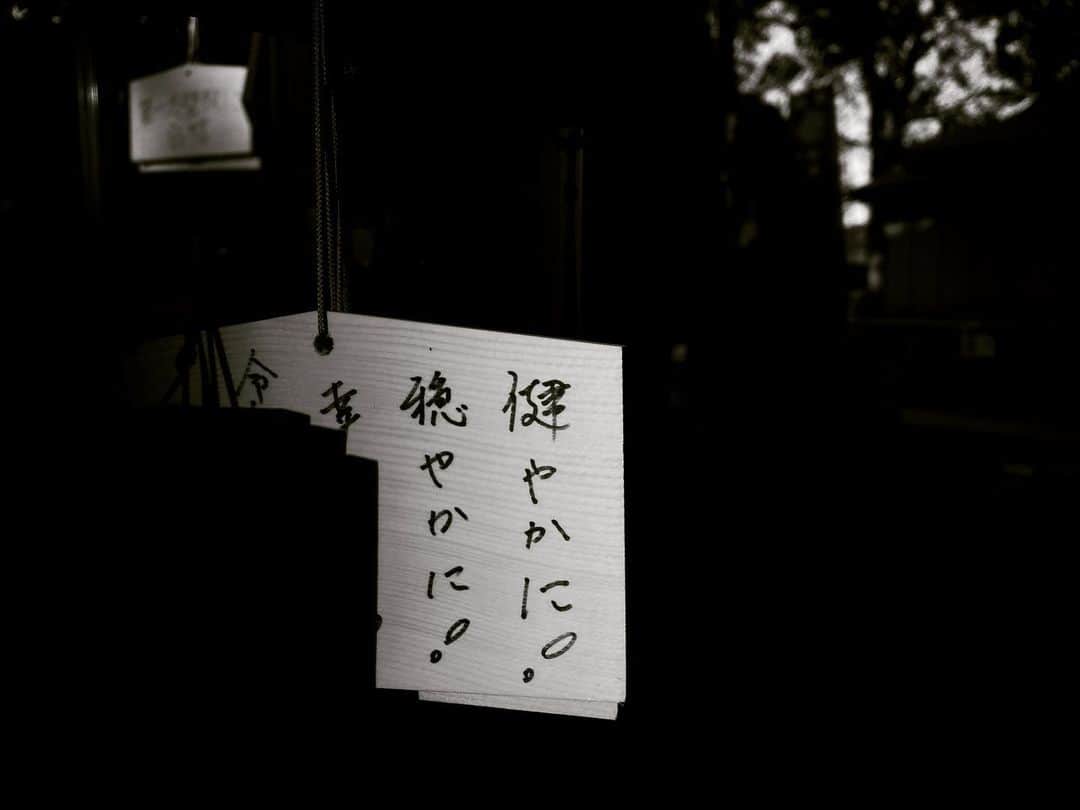 健やかに!
穏やかに!
幸
令